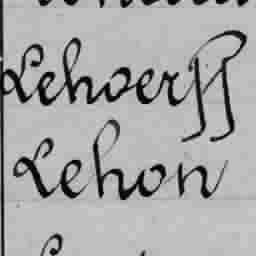 Lehoerff
Lehon